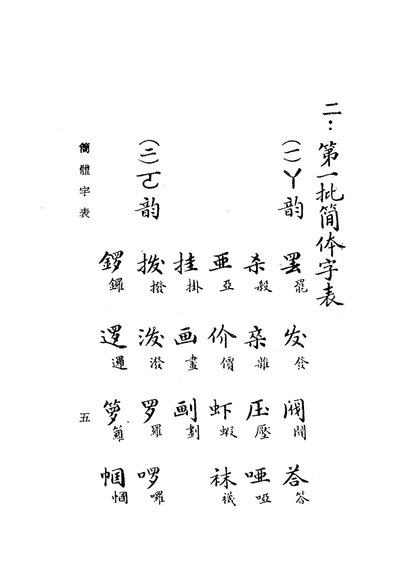 二：第一批简体字表
(一)ㄚ韵
罢罷 发發 阀閥 荅答
杀殺 杂雜 圧壓 哑啞
亜亞 价價 虾蝦 袜襪
挂掛 画畫 㓰劃
(二)ㄛ韵
拨撥 泼潑 罗羅 啰囉
锣鑼 逻邏 箩籮 帼幗
簡體字表
五